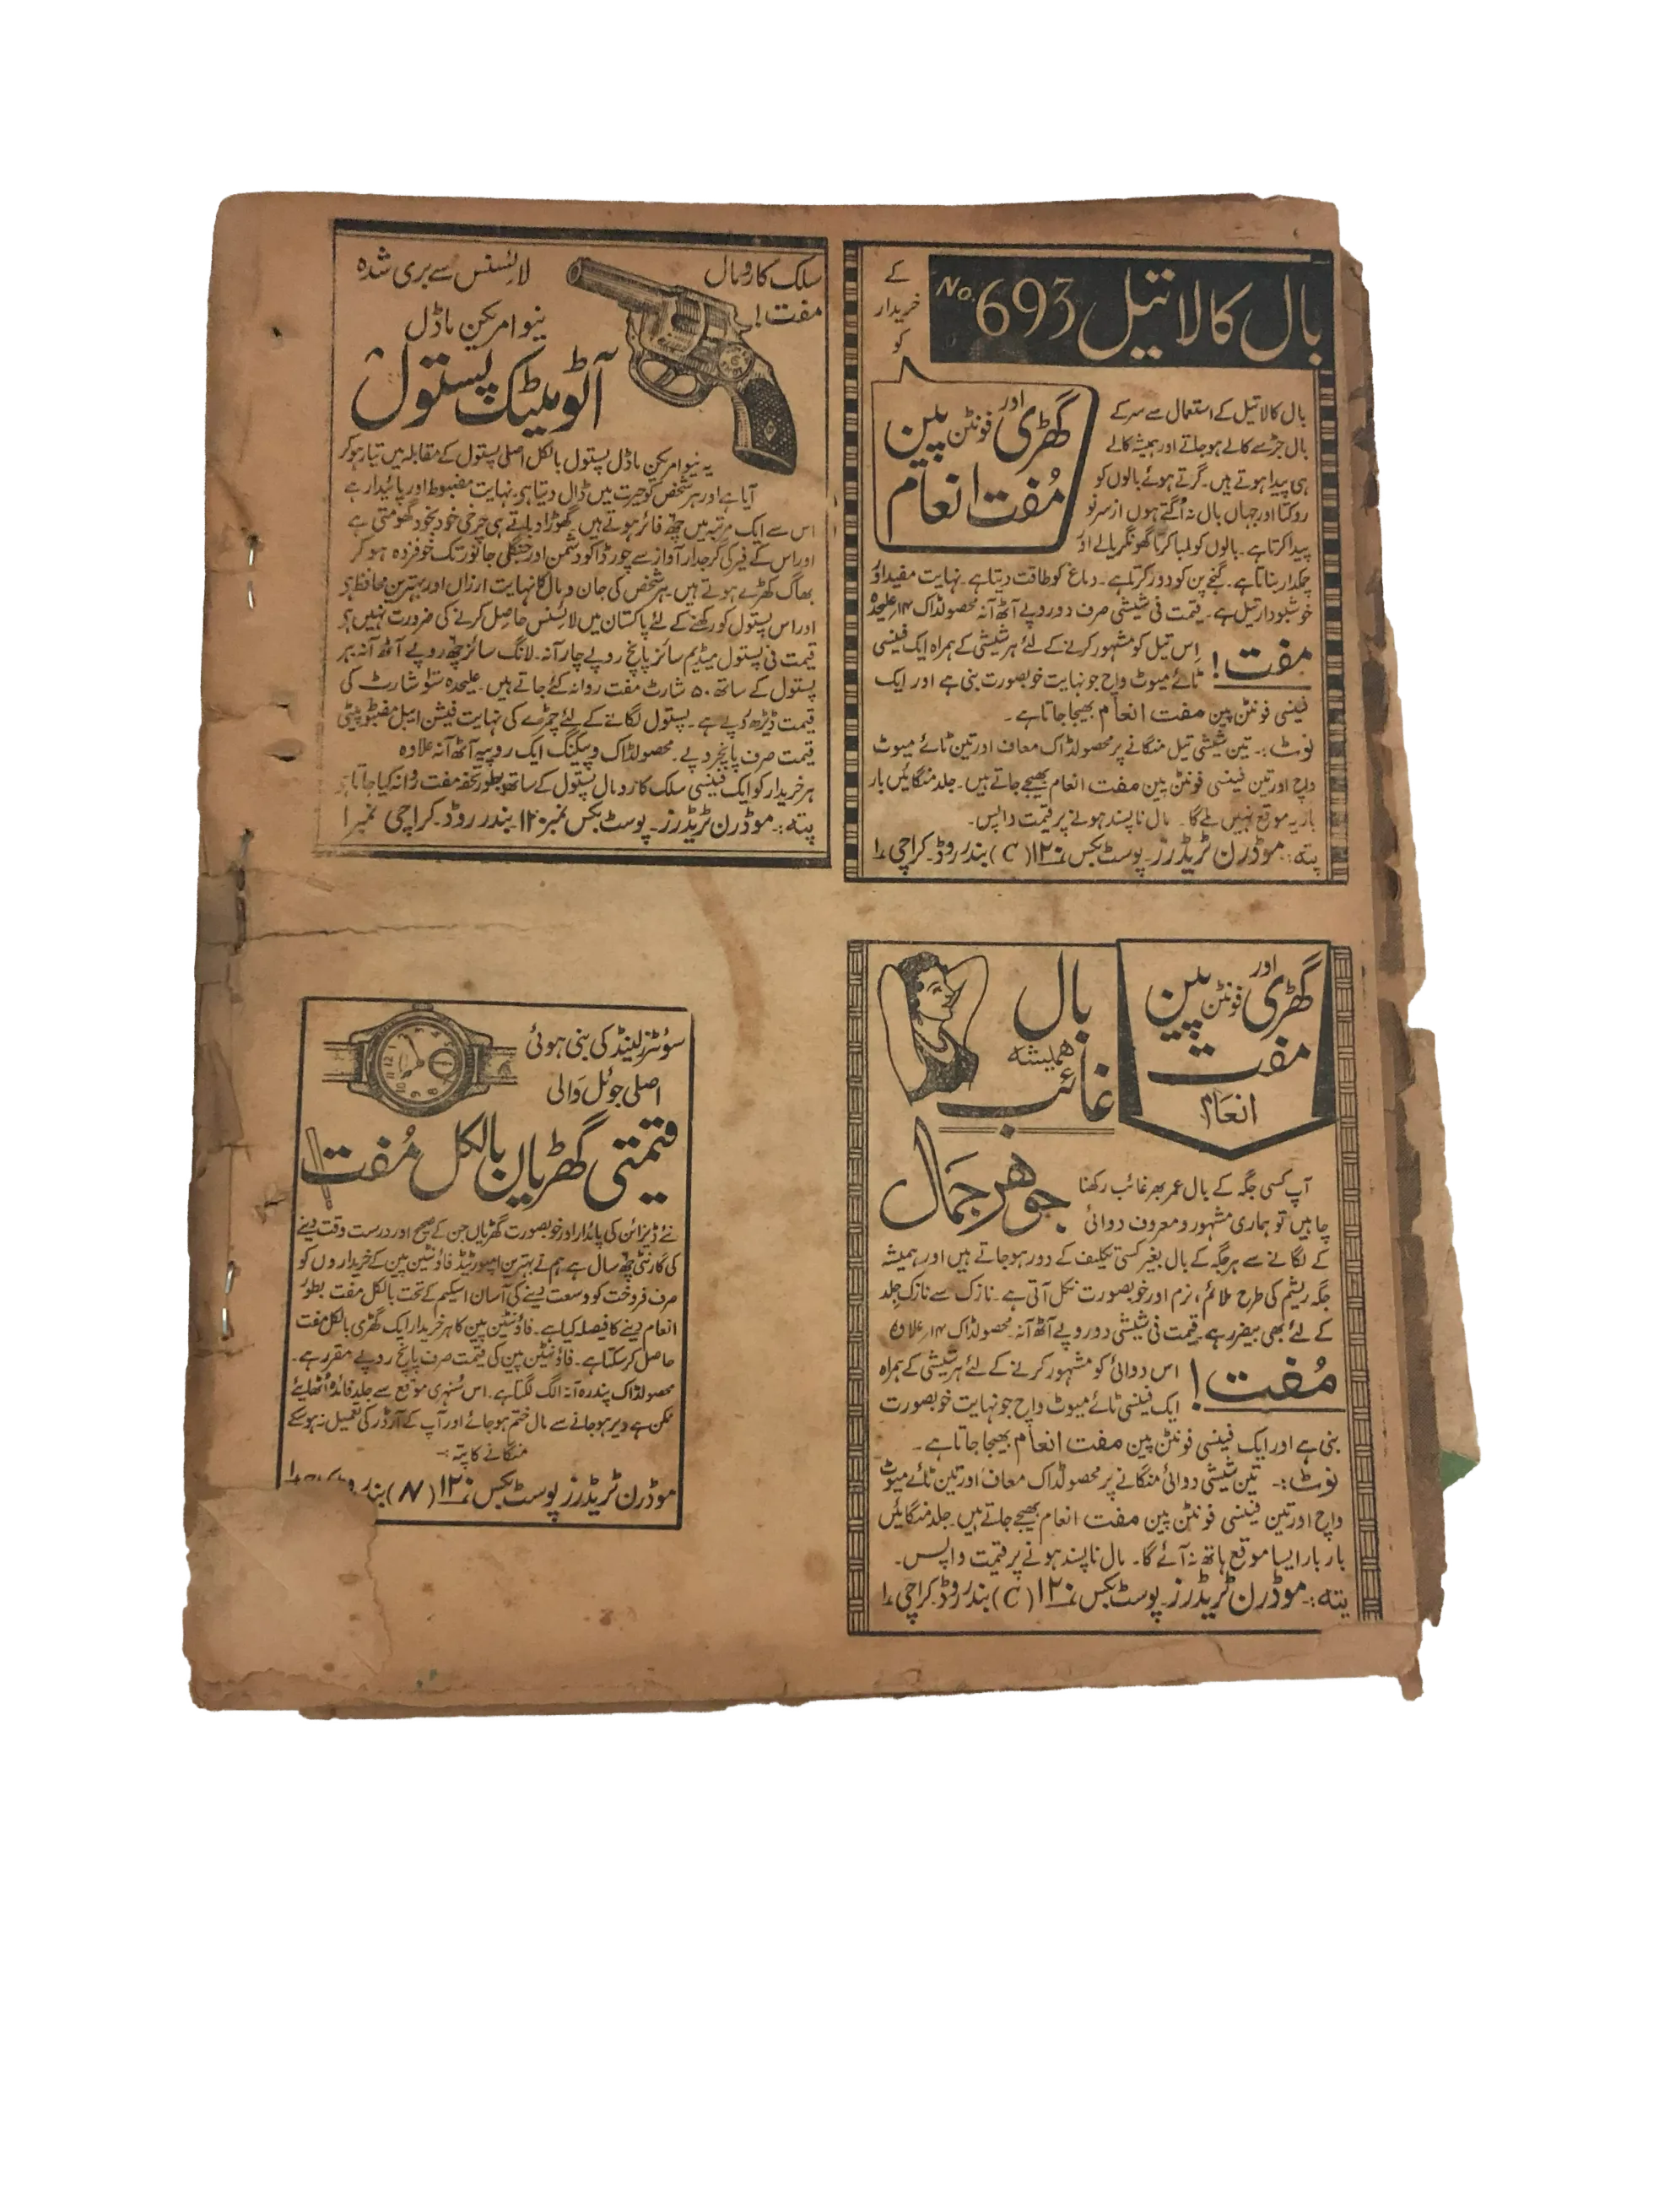 بال کالا تیل No. 693
کے
خریدار
کو
گھڑی اور فونٹن پین
مُفت انعام
بال کالا تیل کے استعمال سے سر کے
بال جڑ سے کالے ہو جاتے اور ہمیشہ کالے
ہی پیدا ہوتے ہیں۔ گرتے ہوئے بالوں کو
روکتا اور جہاں بال نہ اُگتے ہوں از سر نو
پیدا کرتا ہے۔ بالوں کو لمبا کرتا گھونگریالے اور
چمکدار بناتا ہے۔ گنجے پن کو دور کرتا ہے۔ دماغ کو طاقت دیتا ہے۔ نہایت مفید اور
خوشبودار تیل ہے۔ قیمت فی شیشی صرف دو روپے آٹھ آنہ محصولڈاک ۱۴؍ علیحدہ
مفت! اِس تیل کو مشہور کرنے کے لئے ہر شیشی کے ہمراہ ایک فینسی
ٹائے میوٹ واچ جو نہایت خوبصورت بنی ہے اور ایک
فینسی فونٹن پین مفت انعام بھیجا جاتا ہے۔
نوٹ:۔ تین شیشی تیل منگانے پر محصولڈاک معاف اور تین ٹائے میوٹ
واچ اور تین فینسی فونٹن پین مفت انعام بھیجے جاتے ہیں۔ جلد منگائیں بار
بار یہ موقع نہیں ملے گا۔ مال ناپسند ہونے پر قیمت واپس۔
پتہ:۔ موڈرن ٹریڈرز۔ پوسٹ بکس نمبر ۱۲۰ (C) بندر روڈ۔ کراچی ۱
سلک کا رومال
مفت!
لائسنس سے بری شدہ
نیو امریکن ماڈل
آٹومیٹک پستول
یہ نیو امریکن ماڈل پستول بالکل اصلی پستول کے مقابلہ میں تیار ہو کر
آیا ہے اور ہر شخص کو حیرت میں ڈال دیتا ہے۔ نہایت مضبوط اور پائیدار ہے
اس سے ایک مرتبہ میں چھ فائر ہوتے ہیں۔ گھوڑا دباتے ہی چرخی خود بخود گھومتی ہے
اور اس کے فیر کی گرجدار آواز سے چور ڈاکو دشمن اور جنگلی جانور تک خوفزدہ ہو کر
بھاگ کھڑے ہوتے ہیں۔ ہر شخص کی جان و مال کا نہایت ارزاں اور بہترین محافظ ہے
اور اس پستول کو رکھنے کے لئے پاکستان میں لائسنس حاصل کرنے کی ضرورت نہیں ہے
قیمت فی پستول میڈیم سائز پانچ روپے چار آنہ۔ لانگ سائز چھ روپے آٹھ آنہ ہر
پستول کے ساتھ ۵۰ شارٹ مفت روانہ کئے جاتے ہیں۔ علیحدہ سَو شارٹ کی
قیمت ڈیڑھ روپے ہے۔ پستول لگانے کے لئے چمڑے کی نہایت فیشن ایبل مضبوط پیٹی
قیمت صرف پانچ روپے۔ محصولڈاک و پیکنگ ایک روپیہ آٹھ آنہ علاوہ
ہر خریدار کو ایک فینسی سلک کا رومال پستول کے ساتھ بطور تحفہ مفت روانہ کیا جاتا ہے
پتہ:۔ موڈرن ٹریڈرز۔ پوسٹ بکس نمبر ۱۲۰ بندر روڈ۔ کراچی نمبر ۱
گھڑی اور فونٹن پین
مفت
انعام
بال
ہمیشہ
غائب
جوہر جمال
آپ کسی جگہ کے بال عمر بھر غائب رکھنا
چاہیں تو ہماری مشہور و معروف دوائی
کے لگانے سے ہر جگہ کے بال بغیر کسی تکلیف کے دور ہو جاتے ہیں اور ہمیشہ
جگہ ریشم کی طرح ملائم، نرم اور خوبصورت نکل آتی ہے۔ نازک سے نازک جلد
کے لئے بھی بیضرر ہے۔ قیمت فی شیشی دو روپے آٹھ آنہ۔ محصولڈاک ۱۴؍ علاوہ
مُفت! اس دوائی کو مشہور کرنے کے لئے ہر شیشی کے ہمراہ
ایک فینسی ٹائے میوٹ واچ جو نہایت خوبصورت
بنی ہے اور ایک فینسی فونٹن پین مفت انعام بھیجا جاتا ہے۔
نوٹ:۔ تین شیشی دوائی منگانے پر محصولڈاک معاف اور تین ٹائے میوٹ
واچ اور تین فینسی فونٹن پین مفت انعام بھیجے جاتے ہیں۔ جلد منگائیں
بار بار ایسا موقع ہاتھ نہ آئے گا۔ مال ناپسند ہونے پر قیمت واپس۔
پتہ:۔ موڈرن ٹریڈرز۔ پوسٹ بکس نمبر ۱۲۰ (C) بندر روڈ۔ کراچی ۱
سوئٹزرلینڈ کی بنی ہوئی
اصلی جوئل والی
قیمتی گھڑیاں بالکل مُفت
نئے ڈیزائن کی پائدار اور خوبصورت گھڑیاں جن کے صحیح اور درست وقت دینے
کی گارنٹی چھ سال ہے ہم نے بہترین امپورٹیڈ فاؤنٹین پین کے خریداروں کو
صرف فروخت کو وسعت دینے کی آسان اسکیم کے تحت بالکل مفت بطور
انعام دینے کا فیصلہ کیا ہے۔ فاؤنٹین پین کا ہر خریدار ایک گھڑی بالکل مفت
حاصل کر سکتا ہے۔ فاؤنٹین پین کی قیمت صرف پانچ روپے مقرر ہے۔
محصولڈاک پندرہ آنہ الگ لگتا ہے۔ اس سُنہری موقع سے جلد فائدہ اُٹھایئے
ممکن ہے دیر ہو جانے سے مال ختم ہو جائے اور آپ کے آرڈر کی تعمیل نہ ہو سکے
منگانے کا پتہ:۔
موڈرن ٹریڈرز پوسٹ بکس نمبر ۱۲۰ (N) بندر